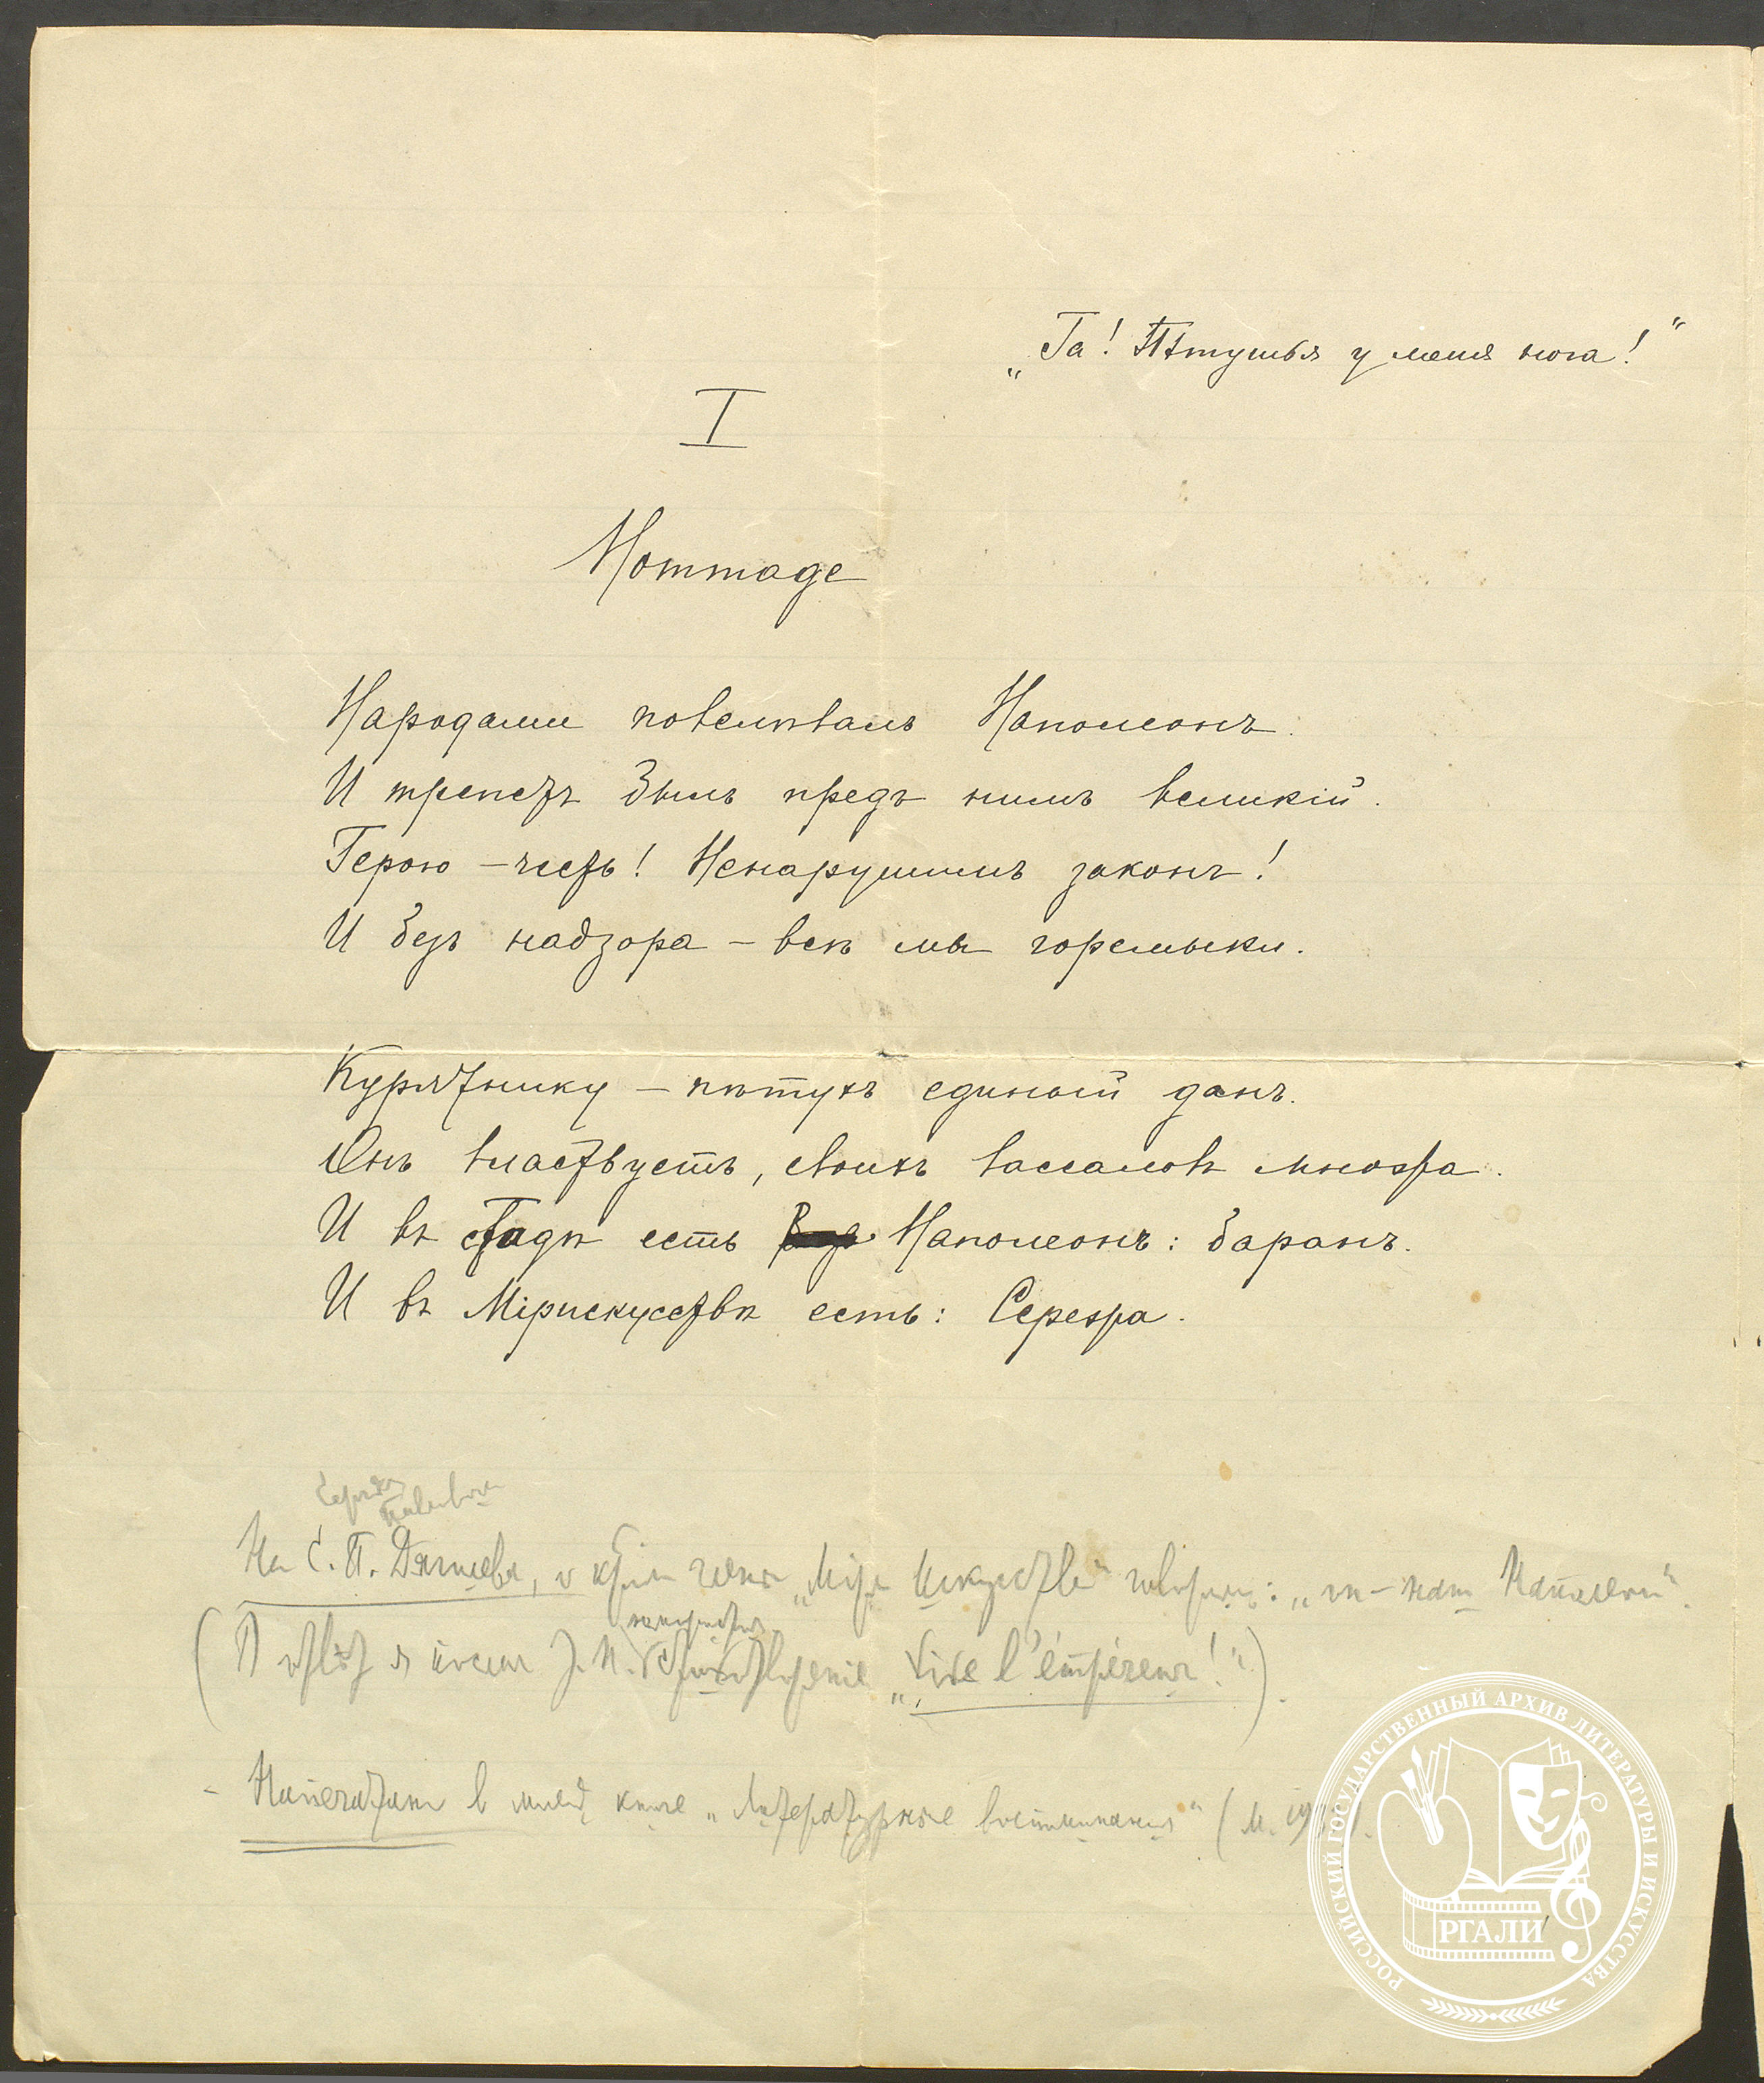 „Га! Пѣтушья у меня нога!“
I
Hommage
Народами повелѣвалъ Наполеонъ.
И трепетъ былъ предъ нимъ великій.
Герою – честь! Ненарушимъ законъ!
И безъ надзора – всѣ мы горемыки.
Курятнику – пѣтухъ единый данъ.
Онъ властвуетъ, своихъ вассаловъ множа.
И въ стадѣ есть Наполеонъ: баранъ.
И въ Мірискусствѣ есть: Сережа.
Сергея Павловича
На С. П. Дягилева, о „Мір Искусства“ говорили: „он – наш Наполеон“.
(„Vive l'émpéreur!“).
– Напечатано в моей книге „Литературные воспоминания“ (М.
РОССИЙСКИЙ ГОСУДАРСТВЕННЫЙ АРХИВ ЛИТЕРАТУРЫ И ИСКУССТВА
РГАЛИ